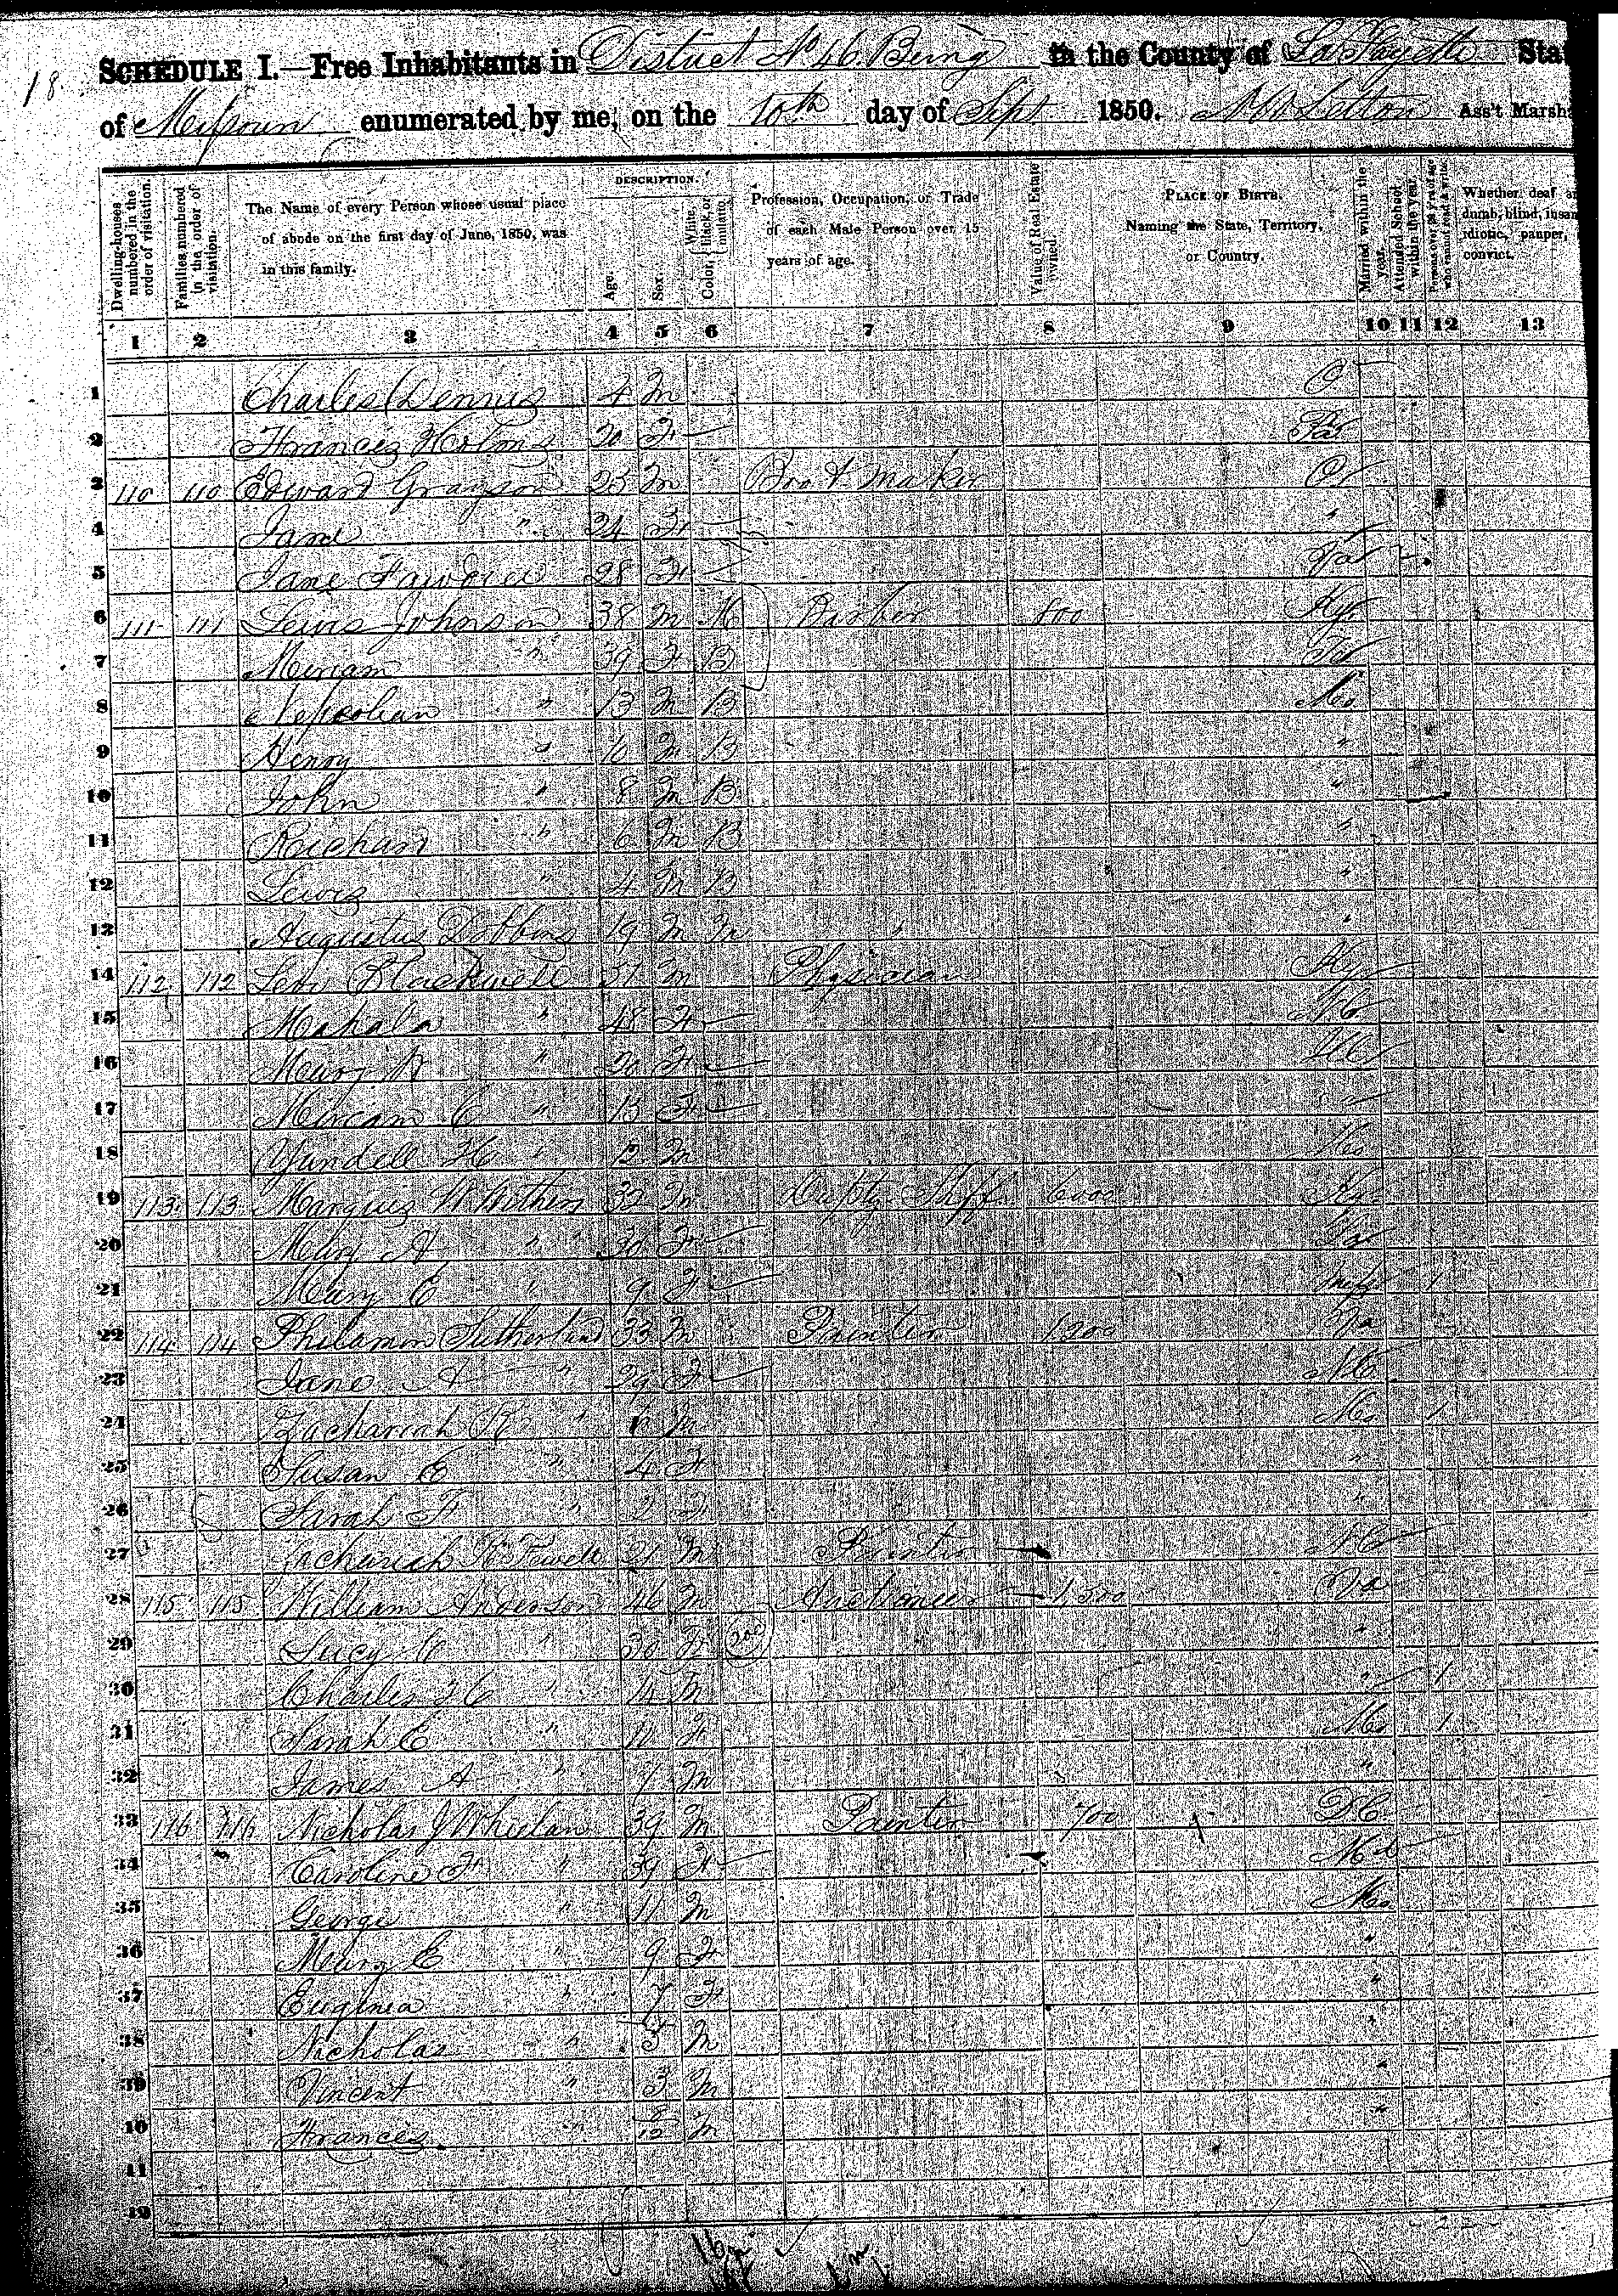 18.
SCHEDULE I.—Free Inhabitants in District No 46. Being in the County of La Fayette Sta
of Missouri enumerated by me, on the 10th day of Sept 1850. Ass't Marsha
Dwelling-houses numbered in the order of visitation.
Families numbered in the order of visitation.
The Name of every Person whose usual place of abode on the first day of June, 1850, was in this family.
DESCRIPTION.
Age.
Sex.
Color, White, black, or mulatto.
Profession, Occupation, or Trade of each Male Person over 15 years of age.
Value of Real Estate owned.
PLACE OF BIRTH. Naming the State, Territory, or Country.
Married within the year.
Attended School within the year.
Persons over 20 y'rs of age who cannot read & write.
Whether deaf an dumb, blind, insan idiotic, pauper, convict.
1 2 3 4 5 6 7 8 9 10 11 12 13
1 Charles Dennis 4 M O
2 Frances Holms 20 F Pa
3 110 110 Edward Grayson 25 M Boot Maker O
4 Jane " 24 F "
5 Jane 28 F
6 111 111 Lewis Johnson 38 M M Barber 800 Ky
7 Miriam " 39 F B
8 " 13 M B Mo
9 Henry " 10 M B "
10 John " 8 M B "
11 Richard " 6 M B "
12 Lewis " 4 M B "
13 Augustus Dobbins 19 M M " "
14 112 112 Blackwell 51 M Physician Ky
15 Mahala " 48 F NC
16 Mary " 20 F Ill
17 Miriam C " 15 F
18 Yundell H " 12 M Mo
19 113 113 Marquis W Withers 32 M Deputy Shff 6000 Ky
20 Mary A " 30 F
21 Mary E " 9 F 1
22 114 114 Philamon Sutherland 33 M Painter 1200 Va
23 Jane A " 29 F NC
24 Zachariah R " M Mo 1
25 Susan E " 4 F "
26 Sarah F " 2 F "
27 Zachariah Fewell 21 M Painter NC
28 115 115 William Anderson 46 M Auctioneer 1,500 Va
29 Lucy " 30 F 200 "
30 Charles H C " 14 M " 1
31 Sarah E " 10 F Mo 1
32 James A " 7 M "
33 116 116 Nicholas J Whelan 39 M Painter 700 DC
34 Caroline F " 39 F Md
35 George " 11 M Mo
36 Mary E " 9 F "
37 Eugenia " 7 F "
38 Nicholas " 5 M "
39 Vincent " 3 M "
40 Frances " M "
41
42